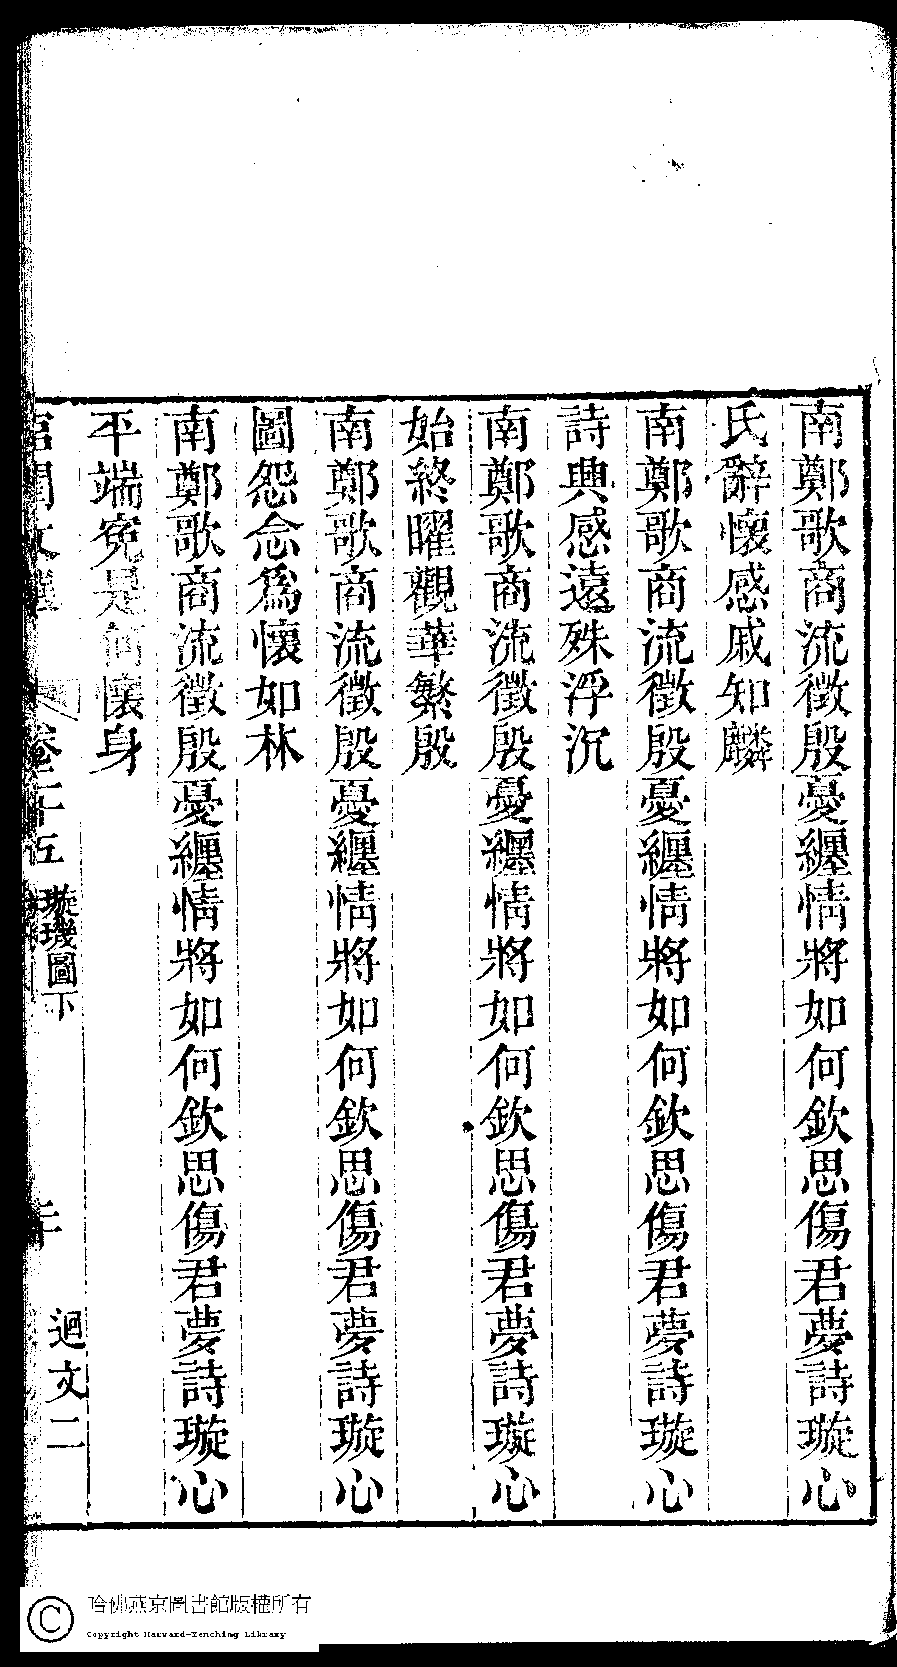 南鄭歌商流徵殷憂纏情將如何欽思傷君夢詩璇心
氏辭懷感戚知麟
南鄭歌商流徵殷憂纏情將如何欽思傷君夢詩璇心
詩興感遠殊浮沉
南鄭歌商流徵殷憂纏情將如何欽思傷君夢詩璇心
始終曜觀華繁殷
南鄭歌商流徵殷憂纏情將如何欽思傷君夢詩璇心
圖怨念爲懷如林
南鄭歌商流徵殷憂纏情將如何欽思傷君夢詩璇心
平端寃是何懷身
卷二十五
璇璣圖下
迴文二
哈佛燕京圖書館版權所有
Copyright Harvard-Yenching Library